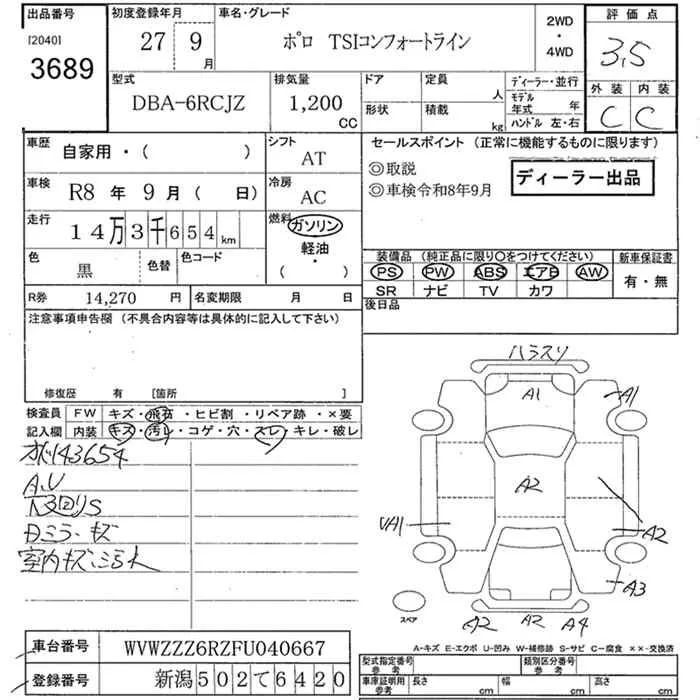 出品番号
[2040]
3689
初度登録年月
27 9 月
車名・グレード
ポロ TSIコンフォートライン
2WD
・
4WD
評価点
3.5
外装 内装
C C
型式
DBA-6RCJZ
排気量
1,200
CC
ドア
形状
定員
人
積載
kg
ディーラー・並行
モデル
年式 年
ハンドル 左・右
車歴
自家用・( )
シフト
AT
車検
R8 年 9 月 ( 日)
冷房
AC
走行
14万3千654 km
燃料
ガソリン
軽油
・
( )
色
黒
色替
色コード
R券 14,270 円
名変期限 月 日
セールスポイント (正常に機能するものに限ります)
◎取説
◎車検令和8年9月
ディーラー出品
装備品 (純正品に限り○をつけてください)
PS PW ABS エアB AW
SR ナビ TV カワ
新車保証書
有・無
後日品
注意事項申告欄 (不具合内容等は具体的に記入して下さい)
修復歴 有 [箇所 ]
検査員
記入欄
FW キズ・飛石・ヒビ割・リペア跡・×要
内装 キズ・汚レ・コゲ・穴・スレ・キレ・破レ
143654
A.U
キズ
室内キズ
ハラスリ
A1
A1
A2
UA1
A2
A3
A2
A4
スペア
A-キズ E-エクボ U-凹み W-補修跡 S-サビ C-腐食 ××-交換済
車台番号 WVWZZZ6RZFU040667
登録番号 新潟502て6420
型式指定番号
参考
類別区分番号
参考
車庫証明用
参考
長さ cm
幅 cm
高さ cm